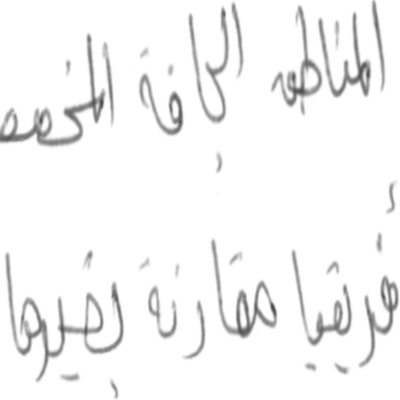 المناطق الجافة
أفريقيا مقارنة بغيرها